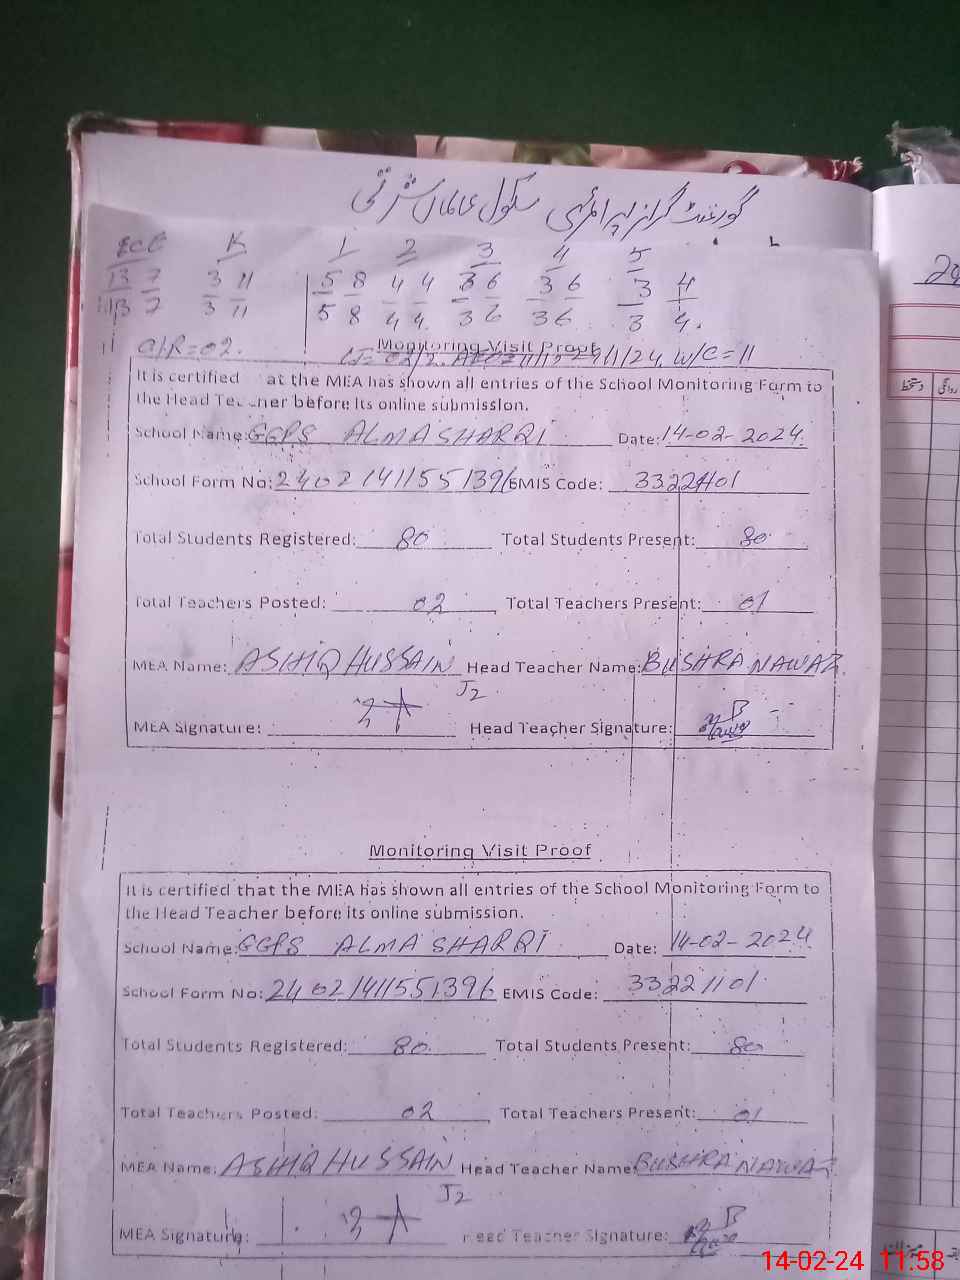 گورنمنٹ گرلز پرائمری سکول عالماں شرقی
ECE K 1 2 3 4 5
13 7 3 11 5 8 4 4 3 6 3 6 3 4
13 7 3 11 5 8 4 4 3 6 3 6 3 4
A/R=02.
Monitoring Visit Proof
29/1/24. W/C=11
It is certified at the MEA has shown all entries of the School Monitoring Form to
the Head Teacher before its online submission.
School Name: GGPS ALMA SHARQI Date: 14-02-2024
School Form No: 24021411551396 EMIS Code: 33221101
Total Students Registered: 80 Total Students Present: 80
Total Teachers Posted: 02 Total Teachers Present: 01
MEA Name: ASHIQ HUSSAIN Head Teacher Name: BUSHRA NAWAZ
J2
MEA Signature: Head Teacher Signature:
Monitoring Visit Proof
It is certified that the MEA has shown all entries of the School Monitoring Form to
the Head Teacher before its online submission.
School Name: GGPS ALMA SHARQI Date: 14-02-2024
School Form No: 24021411551396 EMIS Code: 33221101
Total Students Registered: 80 Total Students Present: 80
Total Teachers Posted: 02 Total Teachers Present: 01
MEA Name: ASHIQ HUSSAIN Head Teacher Name: BUSHRA NAWAZ
J2
MEA Signature: Head Teacher Signature:
دستخط روانگی
14-02-24 11:58